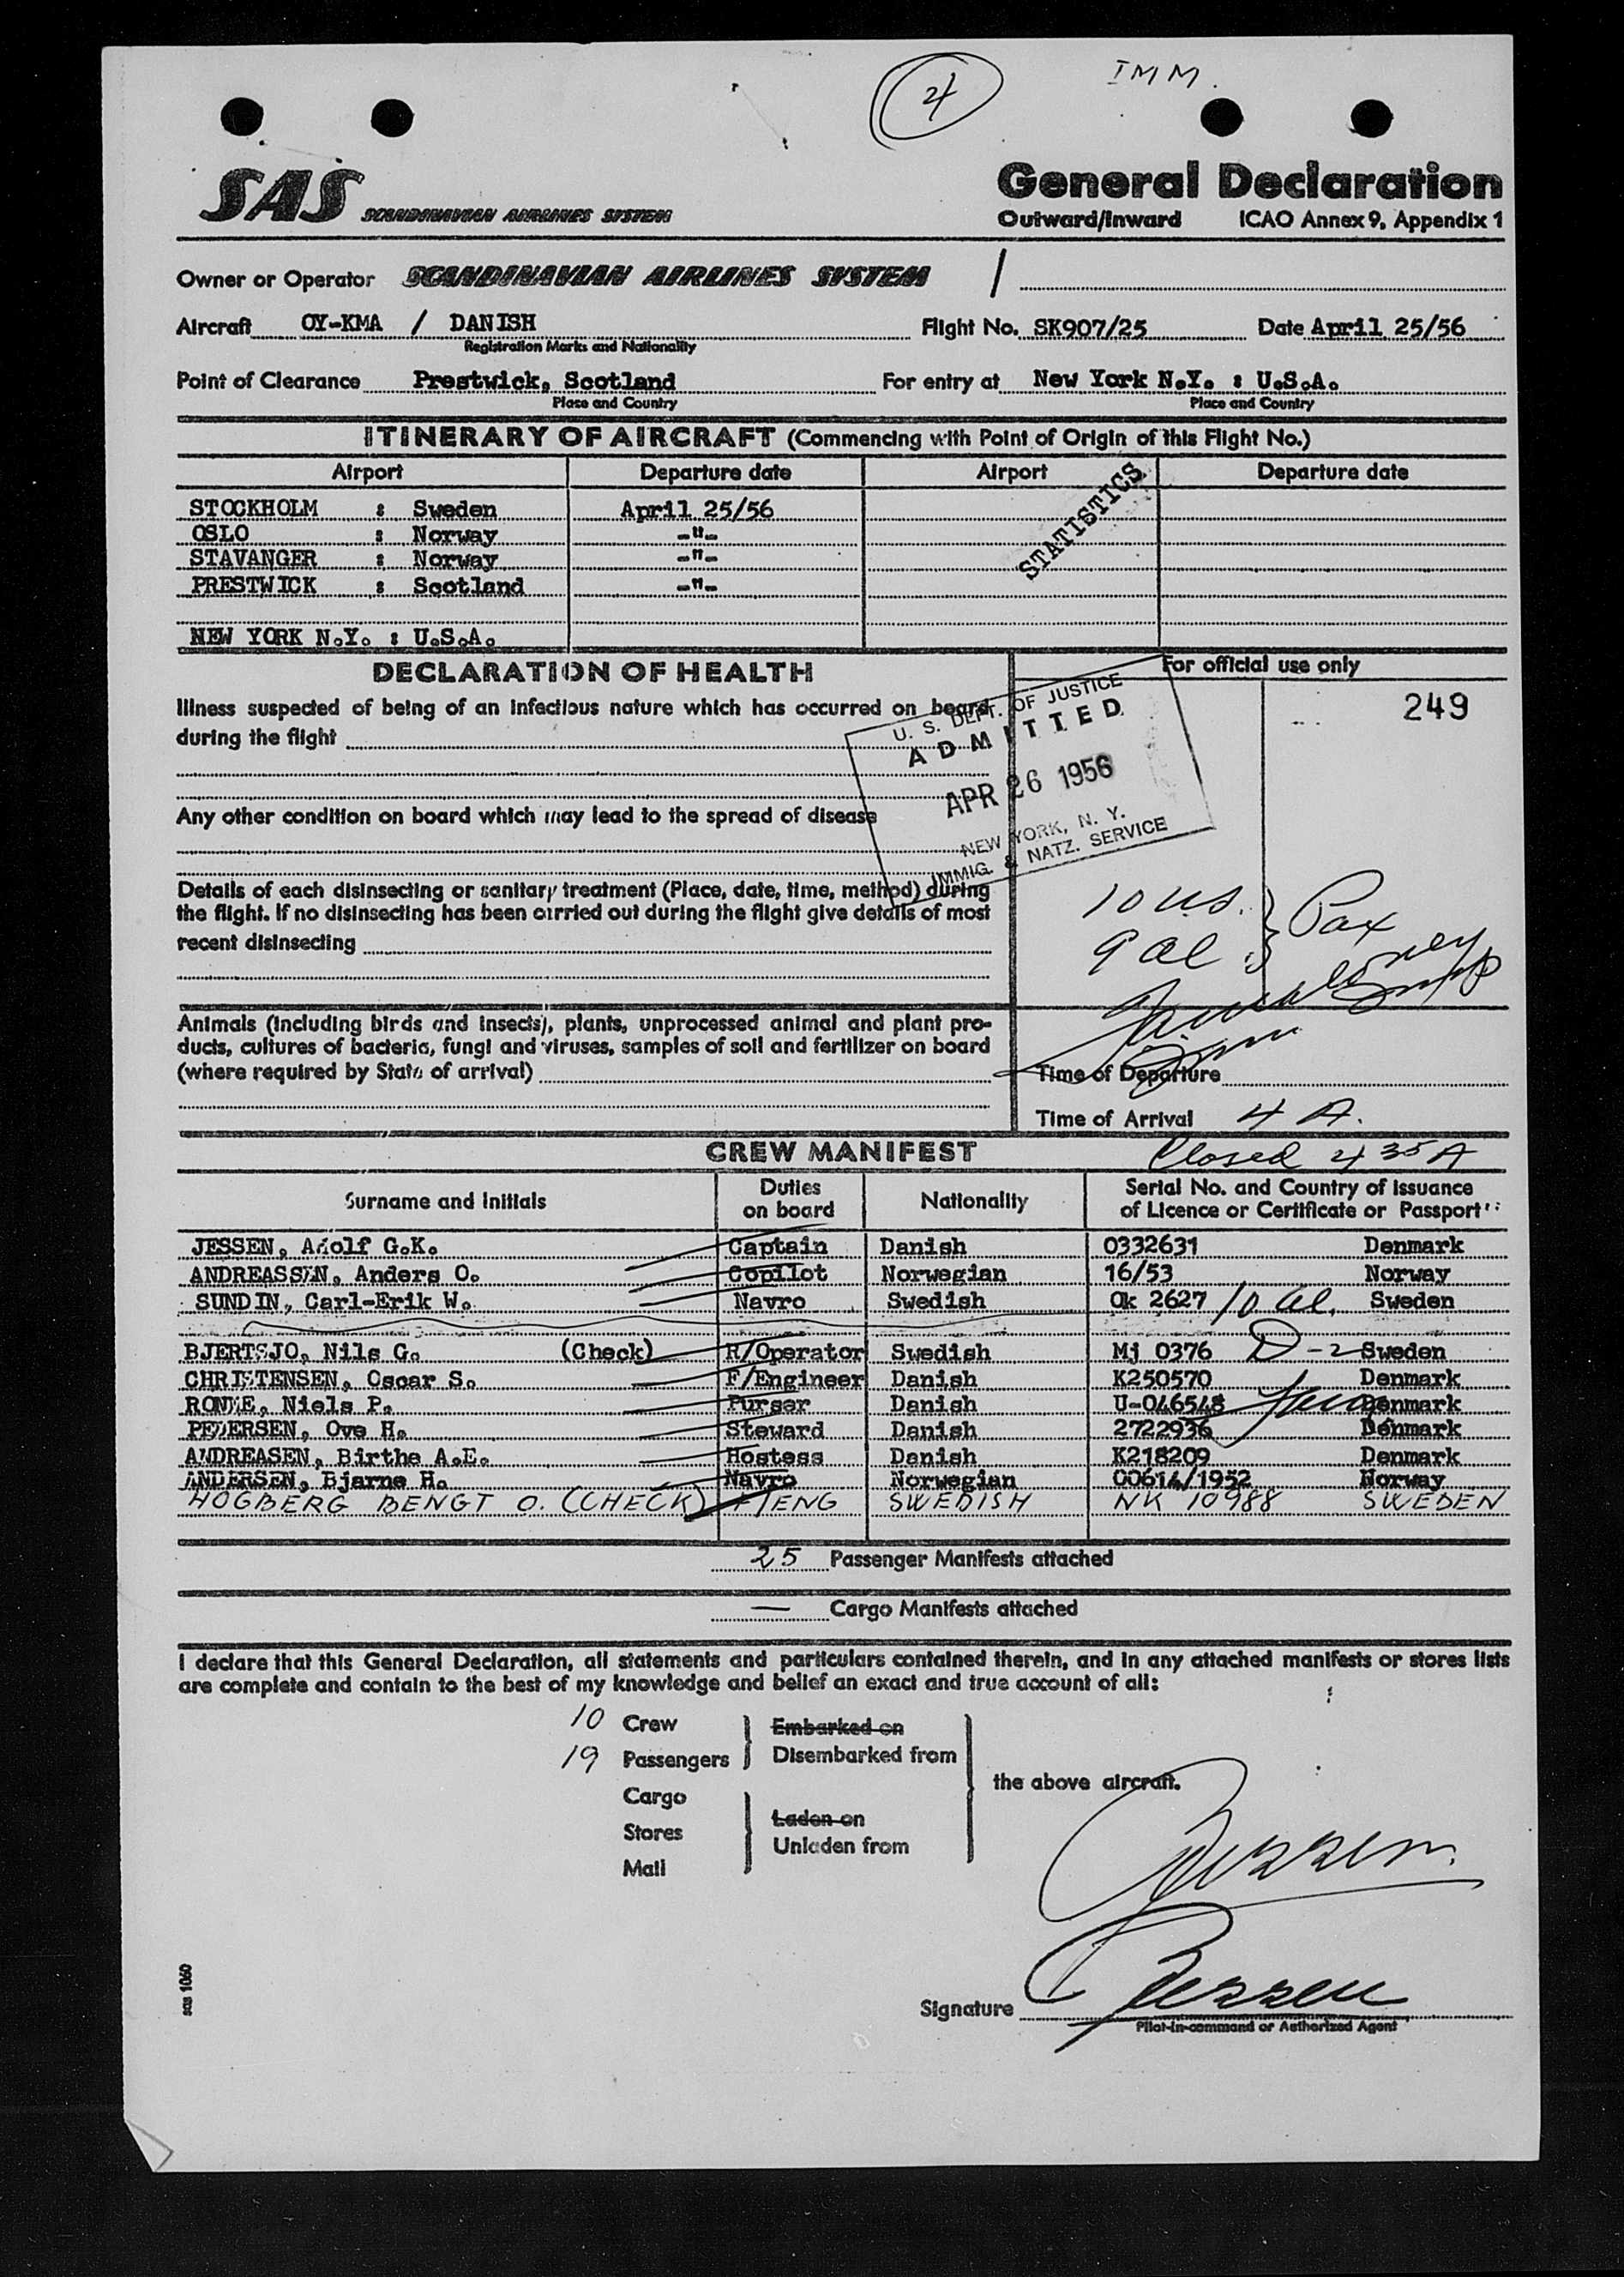 4
IMM.
SAS SCANDINAVIAN AIRLINES SYSTEM
General Declaration
Outward/Inward ICAO Annex 9, Appendix 1
Owner or Operator SCANDINAVIAN AIRLINES SYSTEM /
Aircraft OY-KMA / DANISH Flight No. SK907/25 Date April 25/56
Registration Marks and Nationality
Point of Clearance Prestwick, Scotland For entry at New York N.Y. : U.S.A.
Place and Country Place and Country
ITINERARY OF AIRCRAFT (Commencing with Point of Origin of this Flight No.)
Airport Departure date Airport Departure date
STOCKHOLM : Sweden April 25/56
OSLO : Norway -"-
STAVANGER : Norway -"-
PRESTWICK : Scotland -"-
NEW YORK N.Y. : U.S.A.
STATISTICS
DECLARATION OF HEALTH
For official use only
249
Illness suspected of being of an infectious nature which has occurred on board
during the flight
U. S. DEPT. OF JUSTICE
ADMITTED
APR 26 1956
NEW YORK, N. Y.
IMMIG. & NATZ. SERVICE
Any other condition on board which may lead to the spread of disease
Details of each disinsecting or sanitary treatment (Place, date, time, method) during
the flight. If no disinsecting has been carried out during the flight give details of most
recent disinsecting
10 US.
9 al
} Pax
Animals (including birds and insects), plants, unprocessed animal and plant pro-
ducts, cultures of bacteria, fungi and viruses, samples of soil and fertilizer on board
(where required by State of arrival)
Time of Departure
Time of Arrival 4 A.
CREW MANIFEST
Closed 4 35 A
Surname and Initials Duties on board Nationality Serial No. and Country of Issuance of Licence or Certificate or Passport
JESSEN, Adolf G.K. Captain Danish 0332631 Denmark
ANDREASSEN, Anders O. Copilot Norwegian 16/53 Norway
SUNDIN, Carl-Erik W. Navro Swedish Ok 2627 10 al. Sweden
BJERTSJO, Nils G. (Check) R/Operator Swedish Mj 0376 D-2 Sweden
CHRISTENSEN, Oscar S. F/Engineer Danish K250570 Denmark
RONNE, Niels P. Purser Danish U-046548 Denmark
PEDERSEN, Ove H. Steward Danish 2722936 Denmark
ANDREASEN, Birthe A.E. Hostess Danish K218209 Denmark
ANDERSEN, Bjarne H. Navro Norwegian 00614/1952 Norway
HOGBERG BENGT O. (CHECK) F/ENG SWEDISH NK 10988 SWEDEN
25 Passenger Manifests attached
— Cargo Manifests attached
I declare that this General Declaration, all statements and particulars contained therein, and in any attached manifests or stores lists
are complete and contain to the best of my knowledge and belief an exact and true account of all:
10 Crew
19 Passengers
Embarked on
Disembarked from
Cargo
Stores
Mail
Laden on
Unladen from
the above aircraft.
Jessen.
Signature Jessen
Pilot-in-command or Authorized Agent
sas 1060